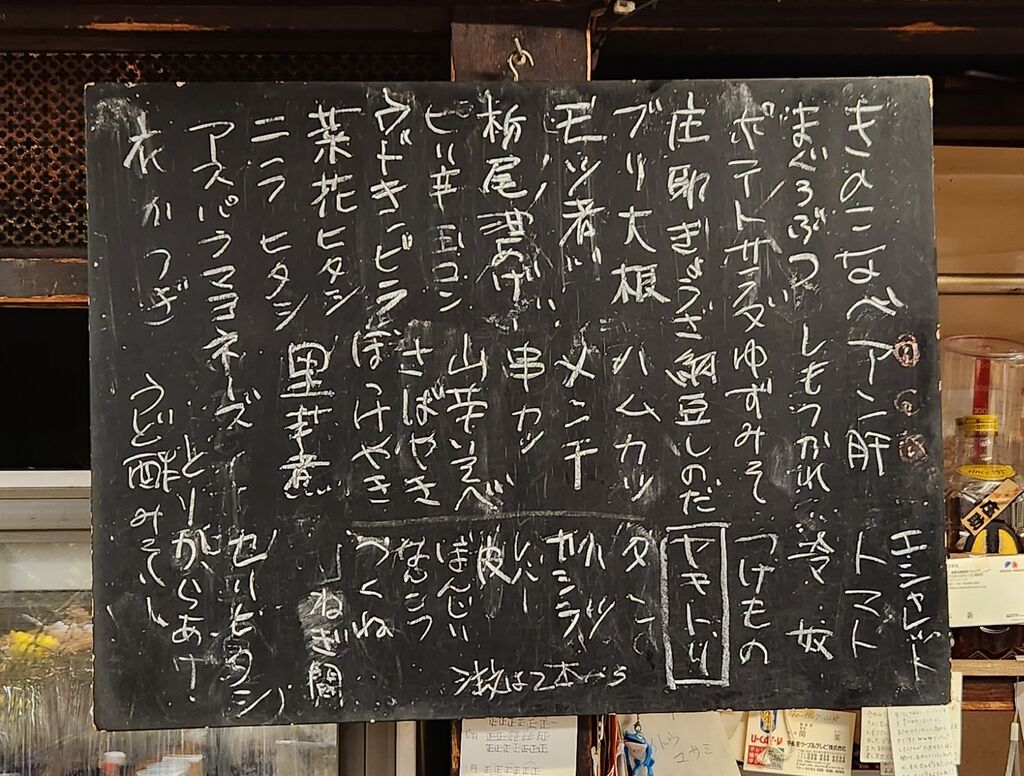 きのこなべ
アン肝
エシャレット
トマト
まぐろぶつ
しもつかれ
冷奴
ポテトサラダ
ゆずみそ
つけもの
庄助ぎょうざ
納豆しのだ
ヤキトリ
ブリ大根
ハムカツ
タン
モツ煮
メンチ
ハツ
カシラ
栃尾油あげ
串カツ
レバー
皮
ピリ辛
コン
山芋いそべ
ぼんじり
なんこつ
ウドキンピラ
さばやき
ほっけやき
つくね
菜花ヒタシ
里芋煮
ねぎ間
ニラヒタシ
セリヒタシ
アスパラマヨネーズ
とりからあげ
衣かつぎ
うど酢みそ
since 1951
U-CAT-V